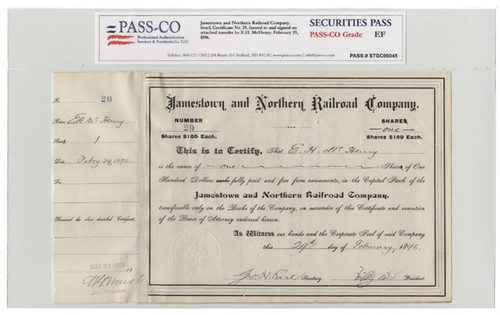 PASS-CO
Professional Authentication
Services & Standards Co. LLC
Jamestown and Northern Railroad Company.
Stock Certificate No. 29. Issued to and signed on
attached transfer by E.H. McHenry. February 29,
1896.
SECURITIES PASS
PASS-CO Grade EF
PASS # STGC00045
No. 29
E.H. McHenry
1
Feby 29, 1896
Jamestown and Northern Railroad Company.
NUMBER
29
SHARES
one
Shares $100 Each.
Shares $100 Each.
This is to Certify, That E. H. McHenry
is the owner of one Shares of One
Hundred Dollars each, fully paid and free from assessments, in the Capital Stock of the
Jamestown and Northern Railroad Company,
transferable only on the Books of the Company, on surrender of this Certificate and execution
of the Power of Attorney endorsed hereon.
As Witness our hands and the Corporate Seal of said Company
this 29th day of February, 1896.
Secretary
President